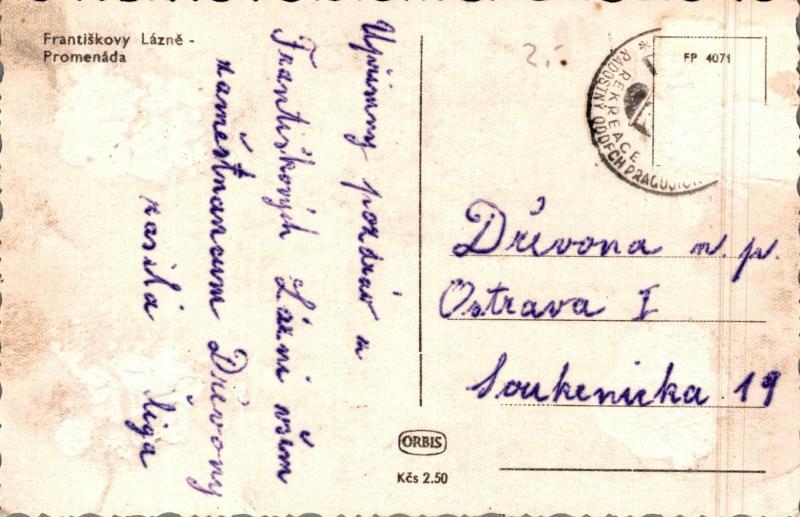 Františkovy Lázně -
Promenáda
Upřimny pozdrav z
Františkových Lázní všem
zaměstnancum Dřívony
zasilá liga
2,-
REKREACE
RADOSTNÝ ODDECH PRACUJÍCÍ
FP 4071
Dřívona n. p.
Ostrava I
Soukenicka 19
ORBIS
Kčs 2.50